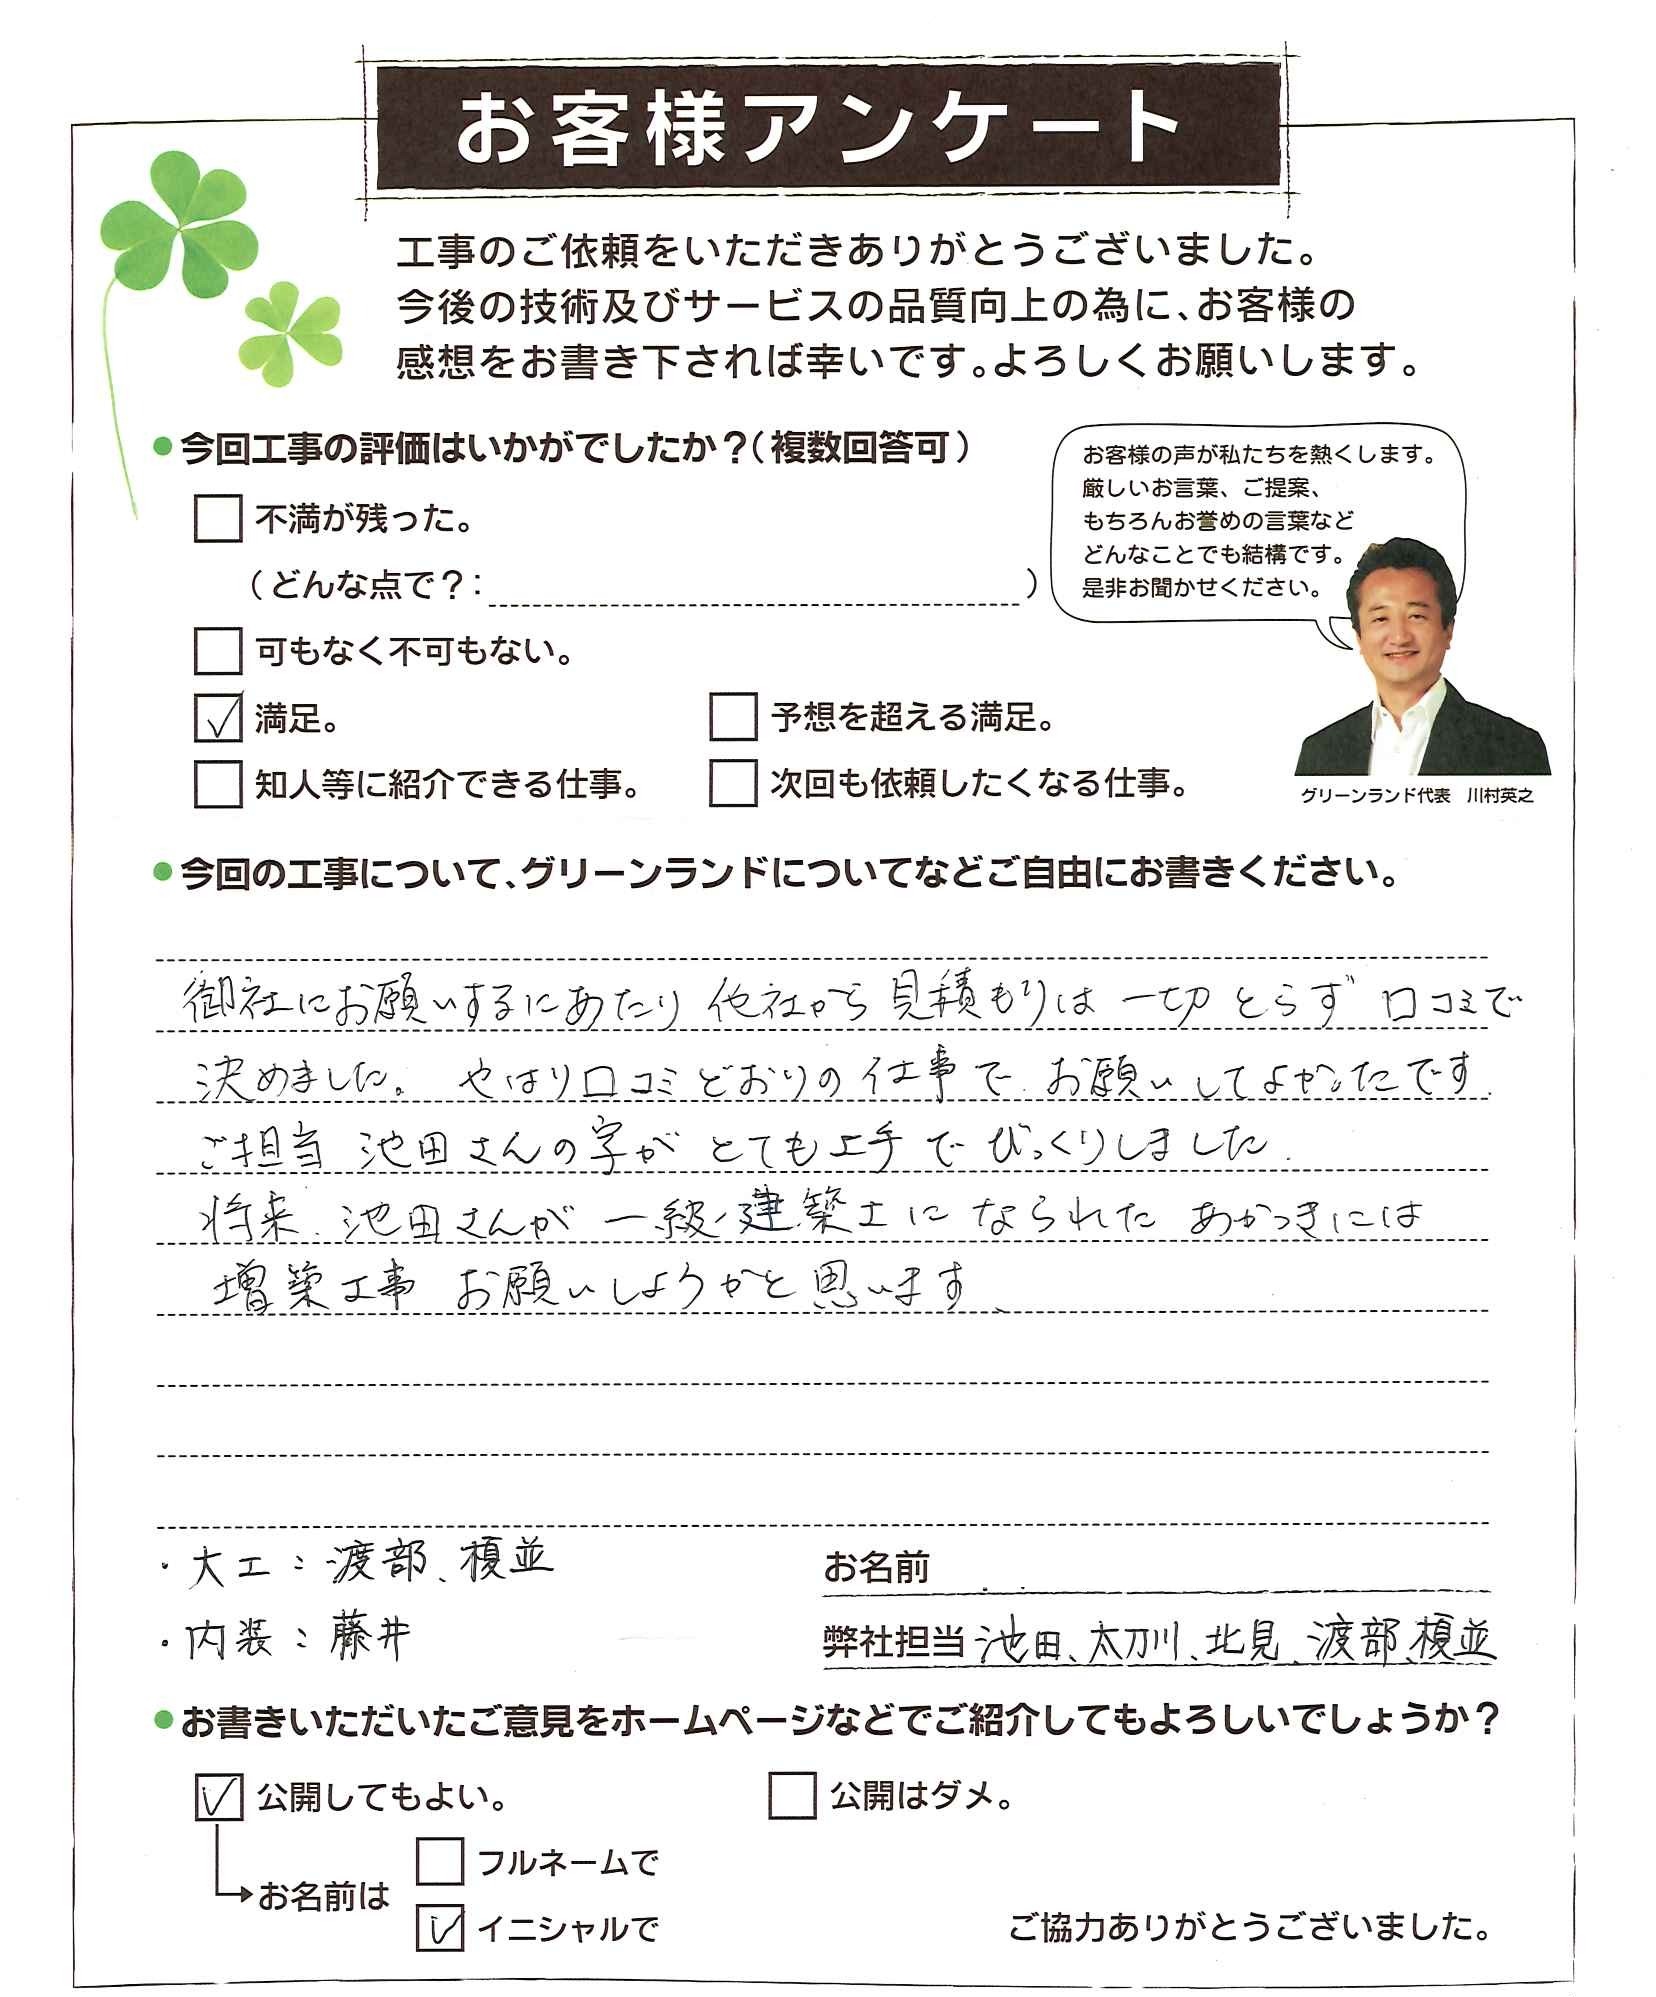 お客様アンケート
工事のご依頼をいただきありがとうございました。
今後の技術及びサービスの品質向上の為に、お客様の
感想をお書き下されば幸いです。よろしくお願いします。
●今回工事の評価はいかがでしたか？（複数回答可）
不満が残った。
（どんな点で？：　　　）
可もなく不可もない。
満足。
予想を超える満足。
知人等に紹介できる仕事。
次回も依頼したくなる仕事。
お客様の声が私たちを熱くします。
厳しいお言葉、ご提案、
もちろんお誉めの言葉など
どんなことでも結構です。
是非お聞かせください。
グリーンランド代表　川村英之
●今回の工事について、グリーンランドについてなどご自由にお書きください。
御社にお願いするにあたり 他社から見積もりは 一切 とらず 口コミで
決めました。 やはり口コミどおりの仕事で お願いしてよかったです.
ご担当 池田さんの字が とても上手で びっくりしました.
将来. 池田さんが 一級建築士に なられた あかつきには
増築工事 お願いしようかと思います、
・大工：渡部、榎並
・内装：藤井
お名前
弊社担当 池田、太刀川、北見、渡部、榎並
●お書きいただいたご意見をホームページなどでご紹介してもよろしいでしょうか？
公開してもよい。
公開はダメ。
お名前は
フルネームで
イニシャルで
ご協力ありがとうございました。